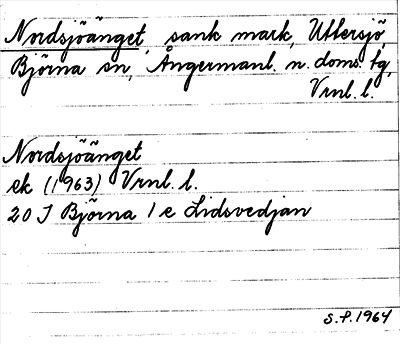 Nordsjöänget, sank mark, Uttersjö
Björna sn, Ångermanl. n. doms. tg,
Vrnl. l.
Nordsjöänget
ek (1963) Vrnl. l.
20 J Björna 1 e Lidsvedjan
S.P. 1964